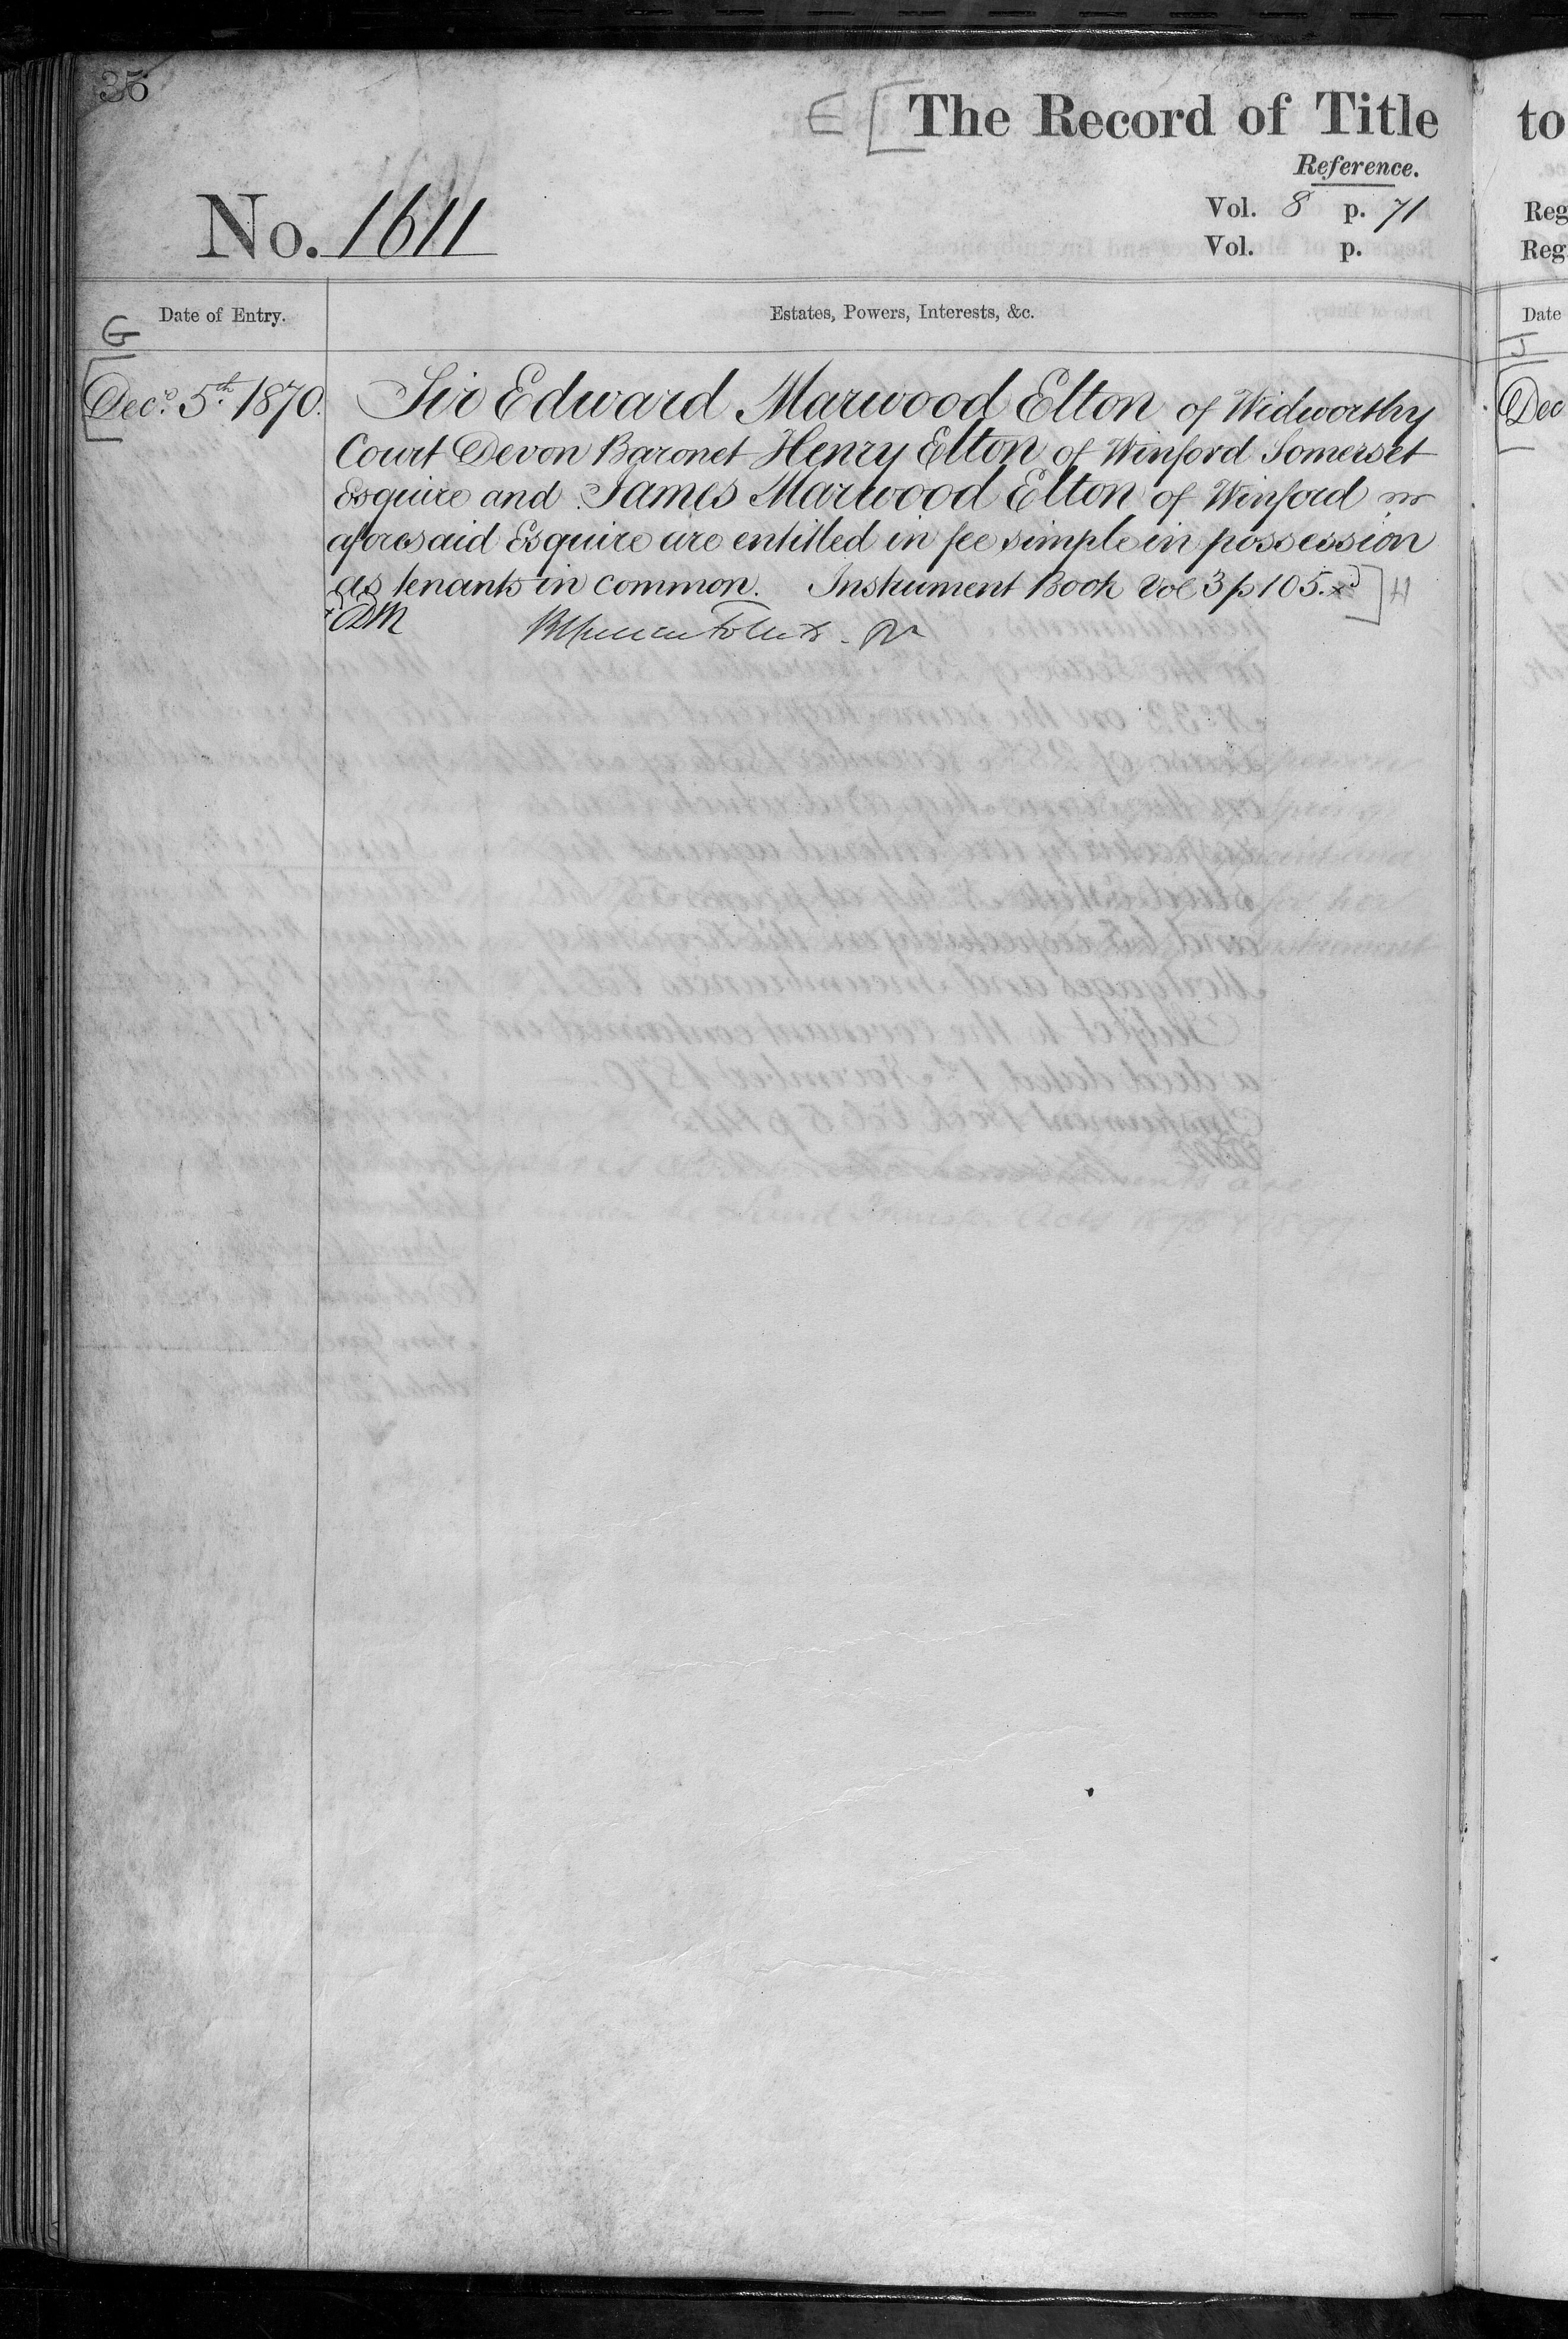 35
E [ The Record of Title
Reference.
No. 1611
Vol. 8 p. 71
Vol. p.
Date of Entry.
Estates, Powers, Interests, &c.
G
Decr. 5th. 1870.
Sir Edward Marwood Elton of Widworthy
Court Devon Baronet Henry Elton of Winford Somerset
Esquire and James Marwood Elton of Winford
aforesaid Esquire are entitled in fee simple in possession
as tenants in common. Instrument Book Vol 3 p 105. ] H
to
Reg
Reg
Date
J
Dec